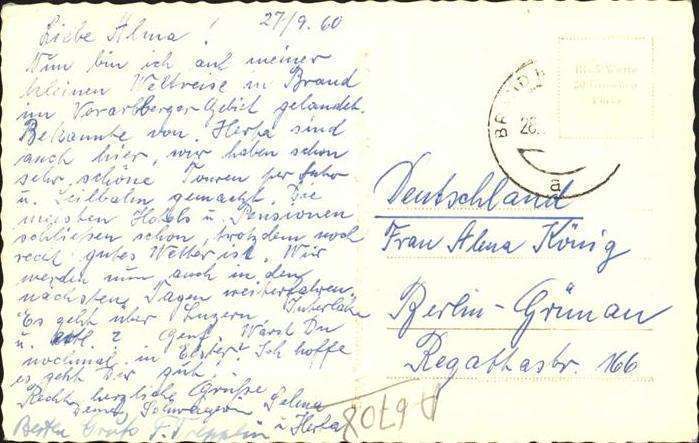 27/9. 60
Liebe Alma!
Nun bin ich auf meiner
kleinen Weltreise in Brand
im Vorarlberger Gebiet gelandet.
Bekannte von Herta sind
auch hier, wir haben schon
sehr schöne Touren per Auto
u. Seilbahn gemacht. Die
meisten Hotels u. Pensionen
schließen schon, trotzdem noch
recht gutes Wetter ist. Wir
werden nun auch in den
nächsten Tagen weiterfahren.
Es geht über Luzern, Interlaken
u. evtl. Genf. Warst Du
nochmal in Elster? Ich hoffe
es geht Dir gut.
Recht herzliche Grüße
Deiner Schwägerin Selma
u. Herta
Besten Gruß
Deutschland
Frau Alma König
Berlin-Grünau
Regattastr. 166
A 6708
BRAND
28.
a